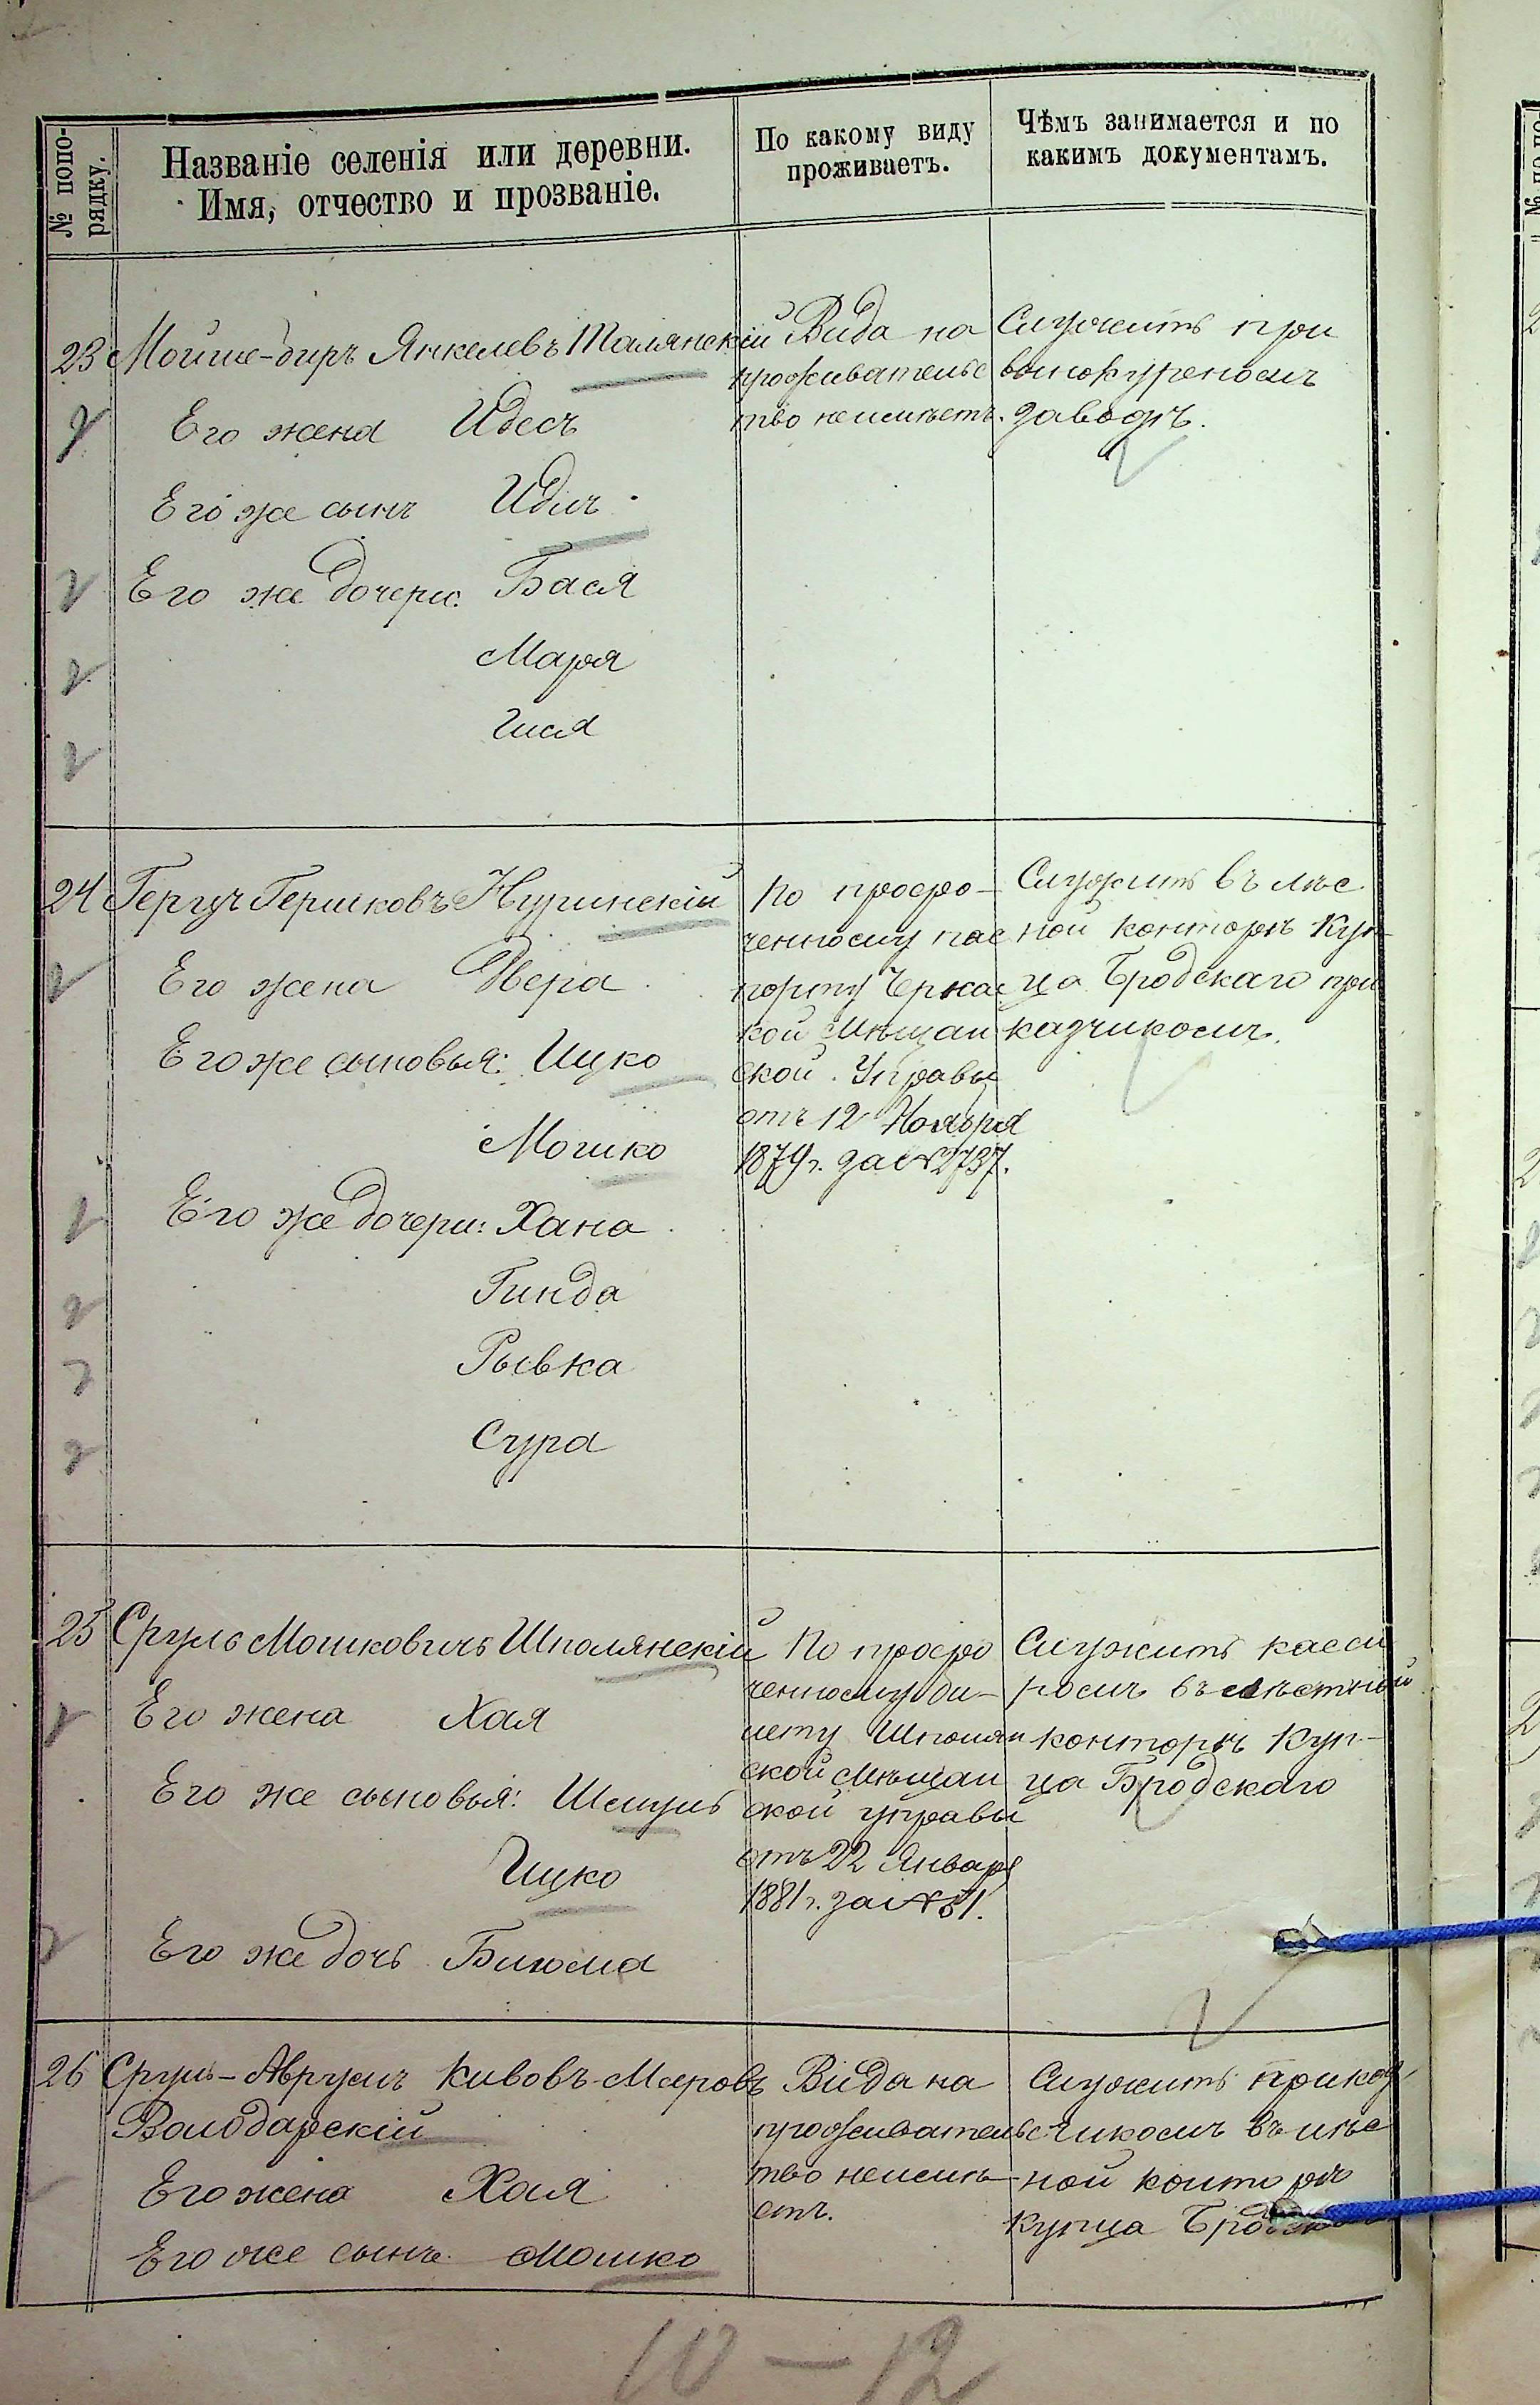 № попо-
рядку.
Названіе селенія или деревни.
Имя, отчество и прозваніе.
По какому виду
проживаетъ.
Чѣмъ занимается и по
какимъ документамъ.
23 Янкелевъ Талянскій
Его жена Идесъ
Его же сынъ
Его же дочери: Бася
Маря
Гися
Вида на
прожиательс
тво неимѣетъ.
Служитъ при
винокуреномъ
заводѣ.
24 Гершковъ
Его жена Двера
Его же сыновья: Ицко
Мошко
Его же дочери: Хана
Гинда
Рывка
Сура
По просро-
ченному пас
порту Черкас
кой Мѣщан
ской Управы
отъ 12 Ноября
1879 г. за № 2737.
Служитъ въ лѣс
ной конторѣ Куп-
ца Бродскаго при
казчикомъ.
25 Сруль Мошковичъ Шполянскій
Его жена Хая
Его же сыновья: Шмуль
Ицко
Его же дочь
По просро
ченному би-
лету Шполян
ской Мѣщан
ской управы
отъ 22 Января
1881 г. за № 51.
Служитъ касси
ромъ въ
конторѣ Куп-
ца Бродскаго
26 Сруль-Аврумъ Кивовъ-Мееровъ
Володарскій
Его жена Хая
Его же сынъ Мошко
Вида на
проживательс
тво неимѣ-
етъ.
Служитъ приказ
чикомъ въ лѣс
ной конторѣ
купца
10 — 12